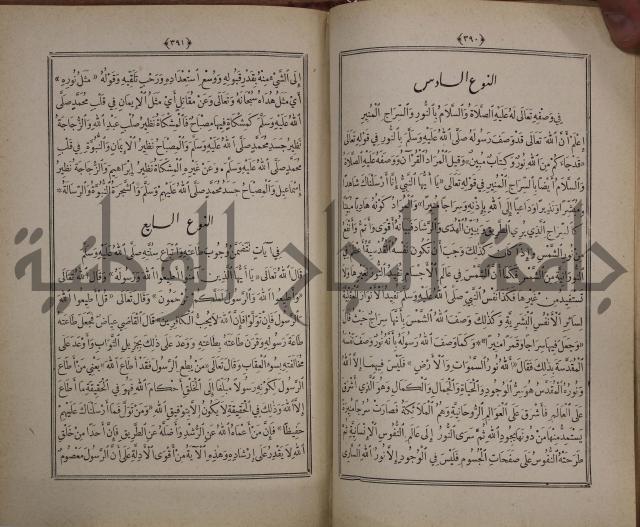 ﴿٣٩٠﴾
النوع السادس
في وصفه تعالى له عليه الصلاة والسلام بالنور والسراج المنير
اعلم أن الله تعالى قد وصف رسوله صلى الله عليه وسلم بالنور في قوله تعالى
قد جاءكم من الله نور وكتاب مبين وقيل المراد القرآن ووصفه عليه الصلاة
والسلام أيضا بالسراج المنير في قوله تعالى يا أيها النبي إنا أرسلناك شاهدا
ومبشرا ونذيرا وداعيا إلى الله بإذنه وسراجا منيرا والمراد كونه هاديا مبينا
كالسراج الذي يري الطريق ويبين الهدى والرشاد فبيانه أقوى وأتم وأنفع
من نور الشمس وإذا كان كذلك وجب أن تكون نفسه القدسية أعظم في
النورانية من الشمس فكما أن الشمس في عالم الأجسام تفيد النور لغيرها ولا
تستفيد من غيرها فكذا نفس النبي صلى الله عليه وسلم تفيد الأنوار العقلية
لسائر الأنفس البشرية وكذلك وصف الله الشمس بأنها سراج حيث قال
وجعل فيها سراجا وقمرا منيرا وكما وصف الله رسوله بأنه نور وصف نفسه
المقدسة بذلك فقال الله نور السموات والأرض فليس فيهما إلا الله
ونوره المقدس هو سر الوجود والحياة والجمال والكمال وهو الذي أشرق
على العالم فأشرق على العوالم الروحانية وهم الملائكة فصارت سرجا منيرة
يستمد منها من دونها بجود الله ثم سرى النور إلى عالم النفوس الإنسانية ثم
طرحته النفوس على صفحات الجسوم فليس في الوجود إلا نور الله الساري
﴿٣٩١﴾
إلى الشيء منه بقدر قبوله ووسع استعداده ورحب تلقيه وقوله مثل نوره
أي مثل هداه سبحانه وتعالى وعن مقاتل أي مثل الإيمان في قلب محمد صلى
الله عليه وسلم كمشكاة فيها مصباح فالمشكاة نظير صلب عبد الله والزجاجة
نظير جسد محمد صلى الله عليه وسلم والمصباح نظير الإيمان والنبوة في قلب
محمد صلى الله عليه وسلم . وعن غيره المشكاة نظير إبراهيم والزجاجة نظير
إسماعيل والمصباح جسد محمد صلى الله عليهم وسلم والشجرة النبوة والرسالة
النوع السابع
في آيات تتضمن وجوب طاعته واتباع سنته صلى الله عليه وسلم
قال الله تعالى يا أيها الذين آمنوا أطيعوا الله ورسوله وقال الله تعالى
وأطيعوا الله والرسول لعلكم ترحمون وقال تعالى قل أطيعوا الله
والرسول فإن تولوا فإن الله لا يحب الكافرين قال القاضي عياض فجعل طاعته
طاعة رسوله وقرن طاعته بطاعته ووعد على ذلك بجزيل الثواب وأوعد على
مخالفته بسوء العقاب وقال تعالى من يطع الرسول فقد أطاع الله يعني من أطاع
الرسول لكونه رسولا مبلغا إلى الخلق أحكام الله فهو في الحقيقة ما أطاع
إلا الله وذلك في الحقيقة لا يكون إلا بتوفيق الله ومن تولى فما أرسلناك عليهم
حفيظا فإن من أعماه الله عن الرشد وأضله عن الطريق فإن أحدا من خلق
الله لا يقدر على إرشاده وهذه الآية من أقوى الأدلة على أن الرسول معصوم
جامعة النجاح الوطنية